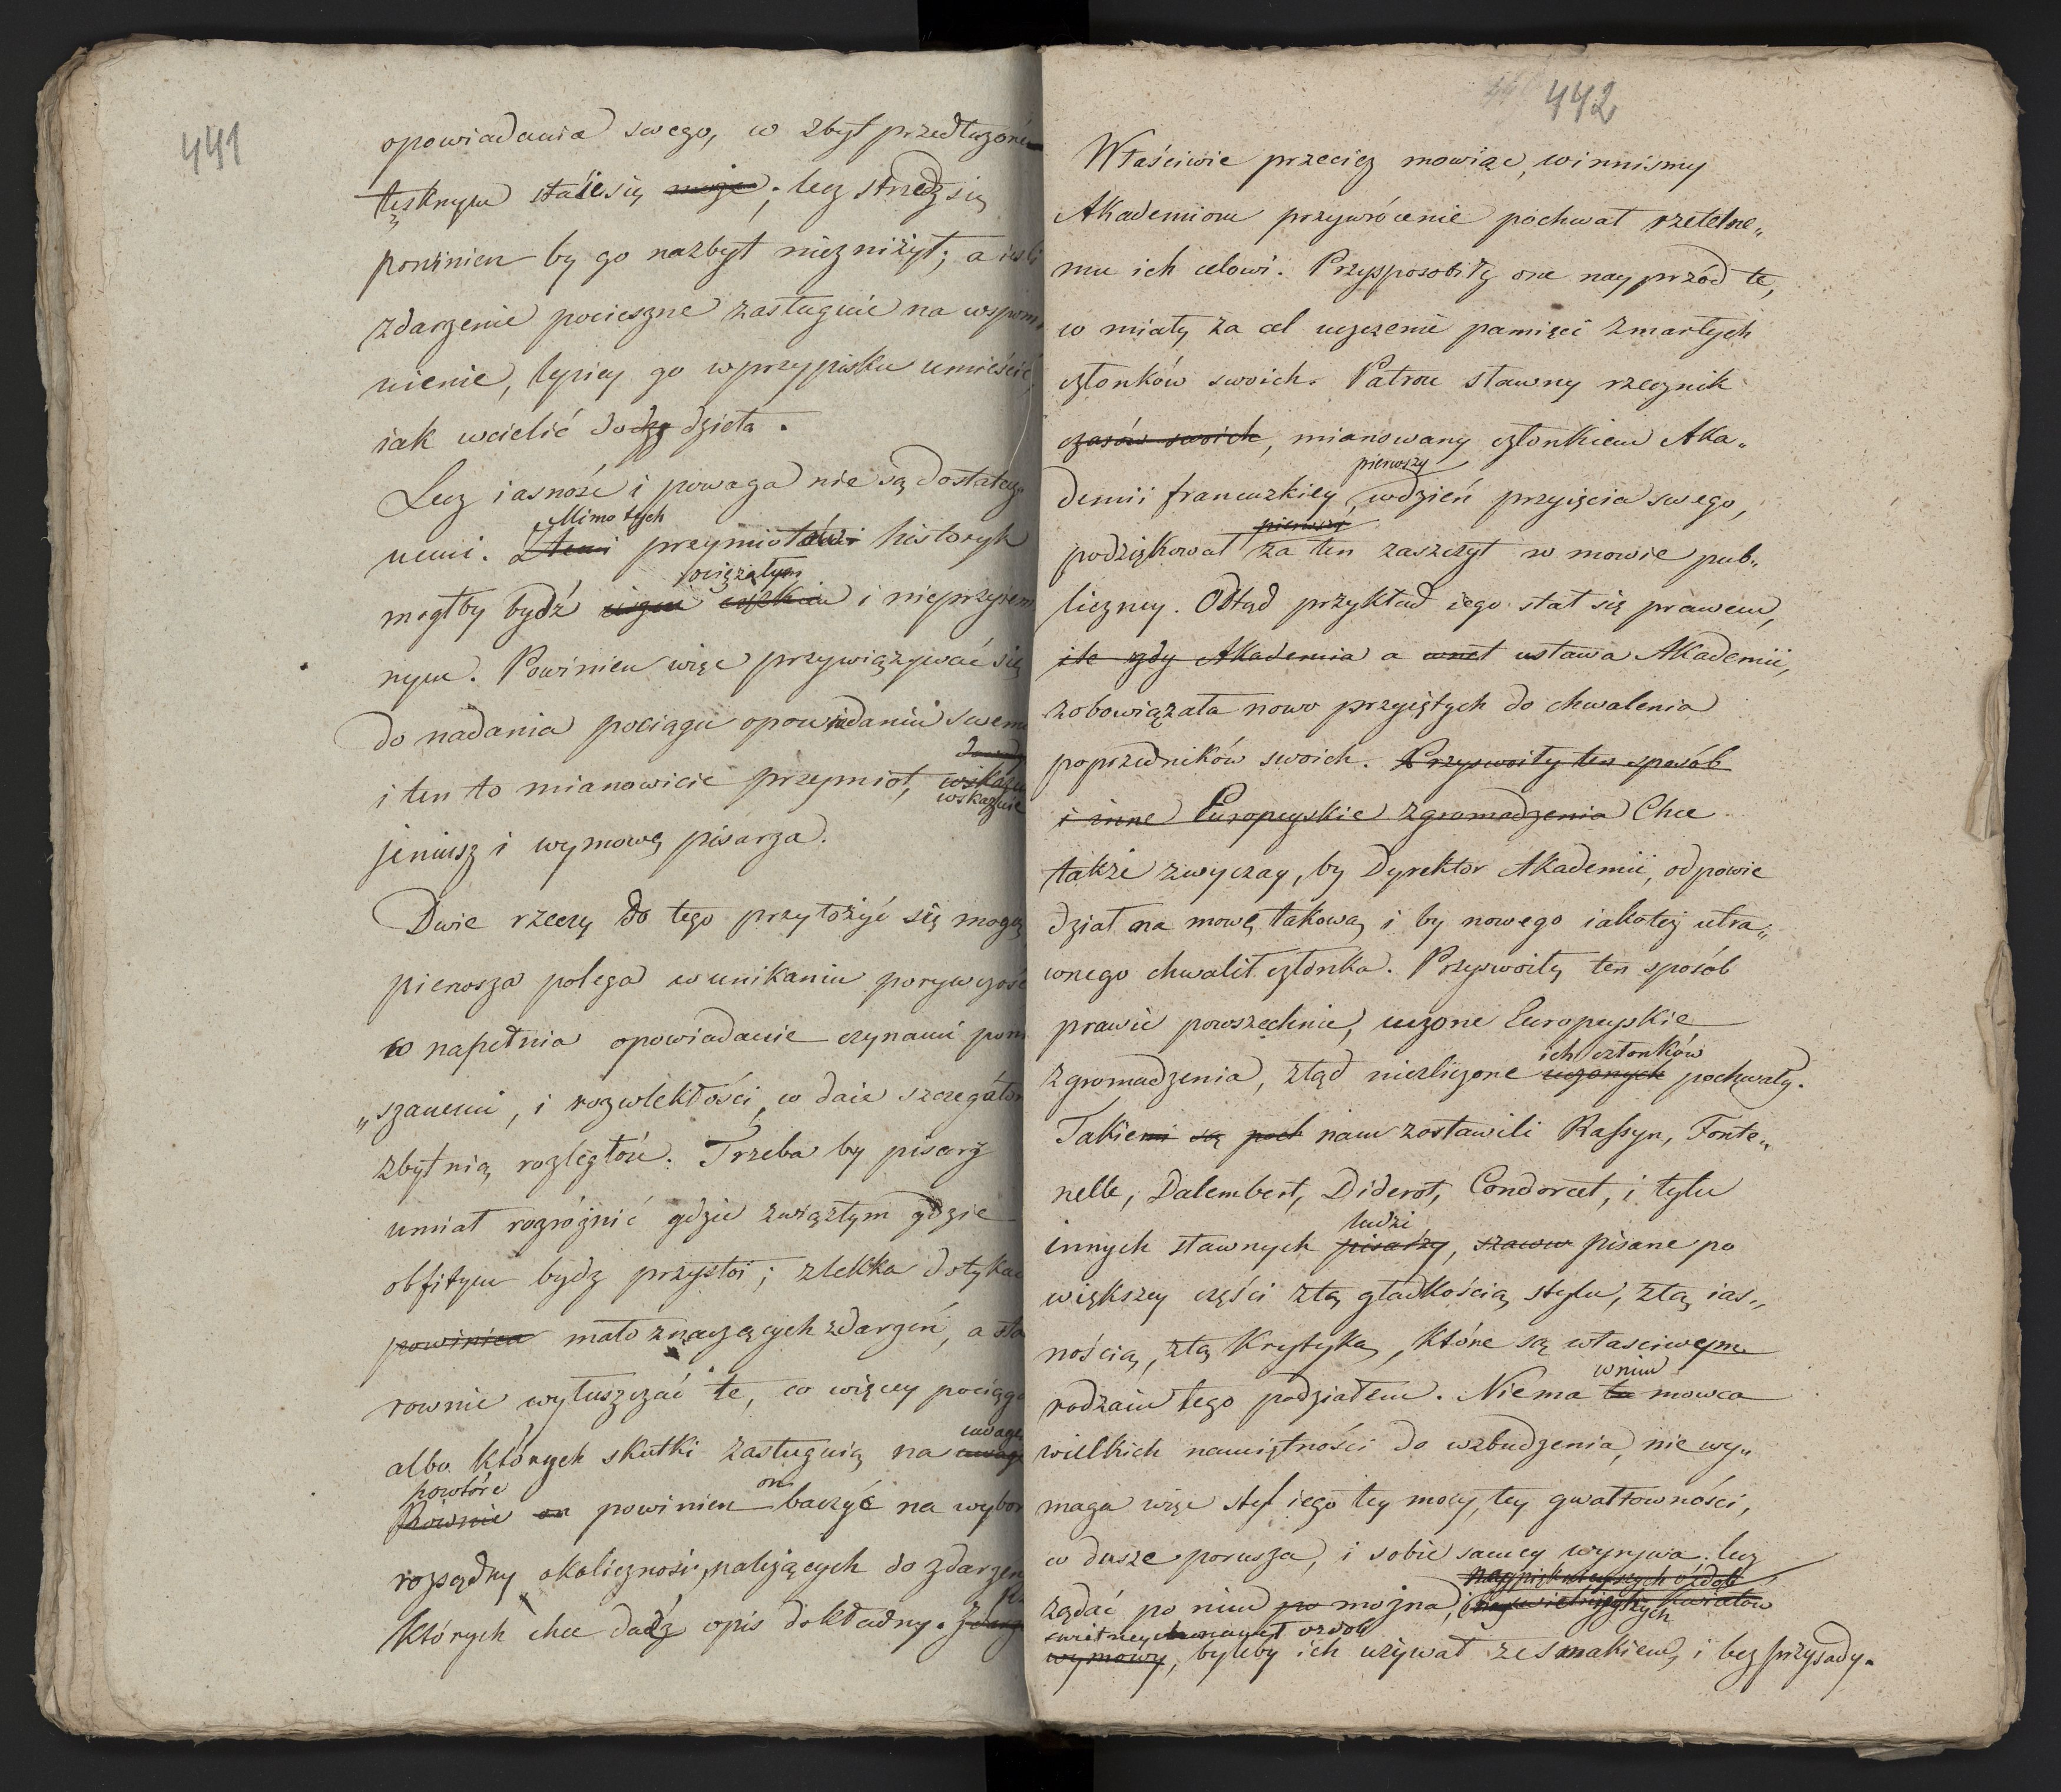 441
opowiadania swego, w zbyt przedłużoném
tęsknym staie się może; lecz strzedz się
powinien by go nazbyt nie zniżył; a iesli
zdarzenie pocieszne zasługuie na wspom„
nienie, lepiey go w przypisku umieścić,
iak wcielić do dzieła.
Lecz iasność i powaga nie są dostatecz
nemi. Mimo tych przymiotów historyk
mógłby bydź ociężałym i nieprzyiem
nym. Powinien więc przywiązywać się
do nadania pociągu opowiadaniu swemu
i ten to mianowicie przymiot, wskazuie
jeniusz i wymowę pisarza.
Dwie rzeczy do tego przyłożyć się mogą
pierwsza polega w unikaniu porywczości
co napełnia opowiadanie czynami pom
„szanemi, i rozwlekłości, co daie szczegółom
zbytnią rozległość. Trzeba by pisarz
umiał rozróżnić gdzie zwięzłym gdzie
obfitym bydz przystoi; zlekka dotykać
powinien mało znaczących zdarzeń, a sta
rownie wyłuszczać te, co więcey pociąga
albo których skutki zasługuią na uwagę
powtóre powinien on baczyć na wybór
rozsądny okoliczności, należących do zdarzeń
których chce dadź opis dokładny.
442
Właściwie przecież mowiąc, winniśmy
Akademiom przywrócenie pochwał rzetelne„
mu ich celowi. Przysposobiły one nayprzód te,
co miały za cel uczczenie pamięci zmarłych
członków swoich. Patrou sławny rzecznik
czasów swoich, mianowany członkiem Aka„
demii francuzkiey, pierwszy w dzień przyięcia swego,
podziękował pierwszy za ten zaszczyt w mowie pub„
liczney. Odtąd przykład iego stał się prawem,
ile gdy Akademia a wnet ustawa Akademii,
zobowiązała nowo przyiętych do chwalenia
poprzedników swoich. Przyswoiły ten sposób
i inne Europeyskie zgromadzenia Chce
także zwyczay, by Dyrektor Akademii, odpowie
dział na mowę takową i by nowego iakoteż utra„
conego chwalił członka. Przyswoiły ten sposób
prawie powszechnie, uczone Europeyskie
zgromadzenia, ztąd niezliczone uczonych ich członków pochwały.
Takiemi są poch nam zostawili Rassyn, Fonte„
nelle, Dalembert, Diderot, Condorcet, i tylu
innych sławnych pisarzy ludzi, pisane po
większey części ztą gładkością stylu, ztą ias„
nością, ztą krytyką, które są właściwym
rodzaiu tego podziałem. Niema w nim mowca
wielkich namiętności do wzbudzenia, nie wy„
maga więc styl iego tey mocy, tey gwałtowności,
co dusze porusza, i sobie samey wyrywa; lecz
żądać po nim można, naypięknieyszych ozdób
wymowy, byleby ich używał ze smakiem, i bez przysady.